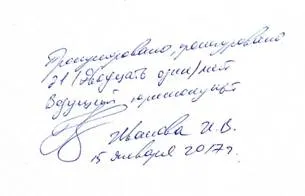 Пронумеровано, прошнуровано
21 (двадцать один) лист
Ведущий юрисконсульт
Иванова И.В.
15 января 2017 г.